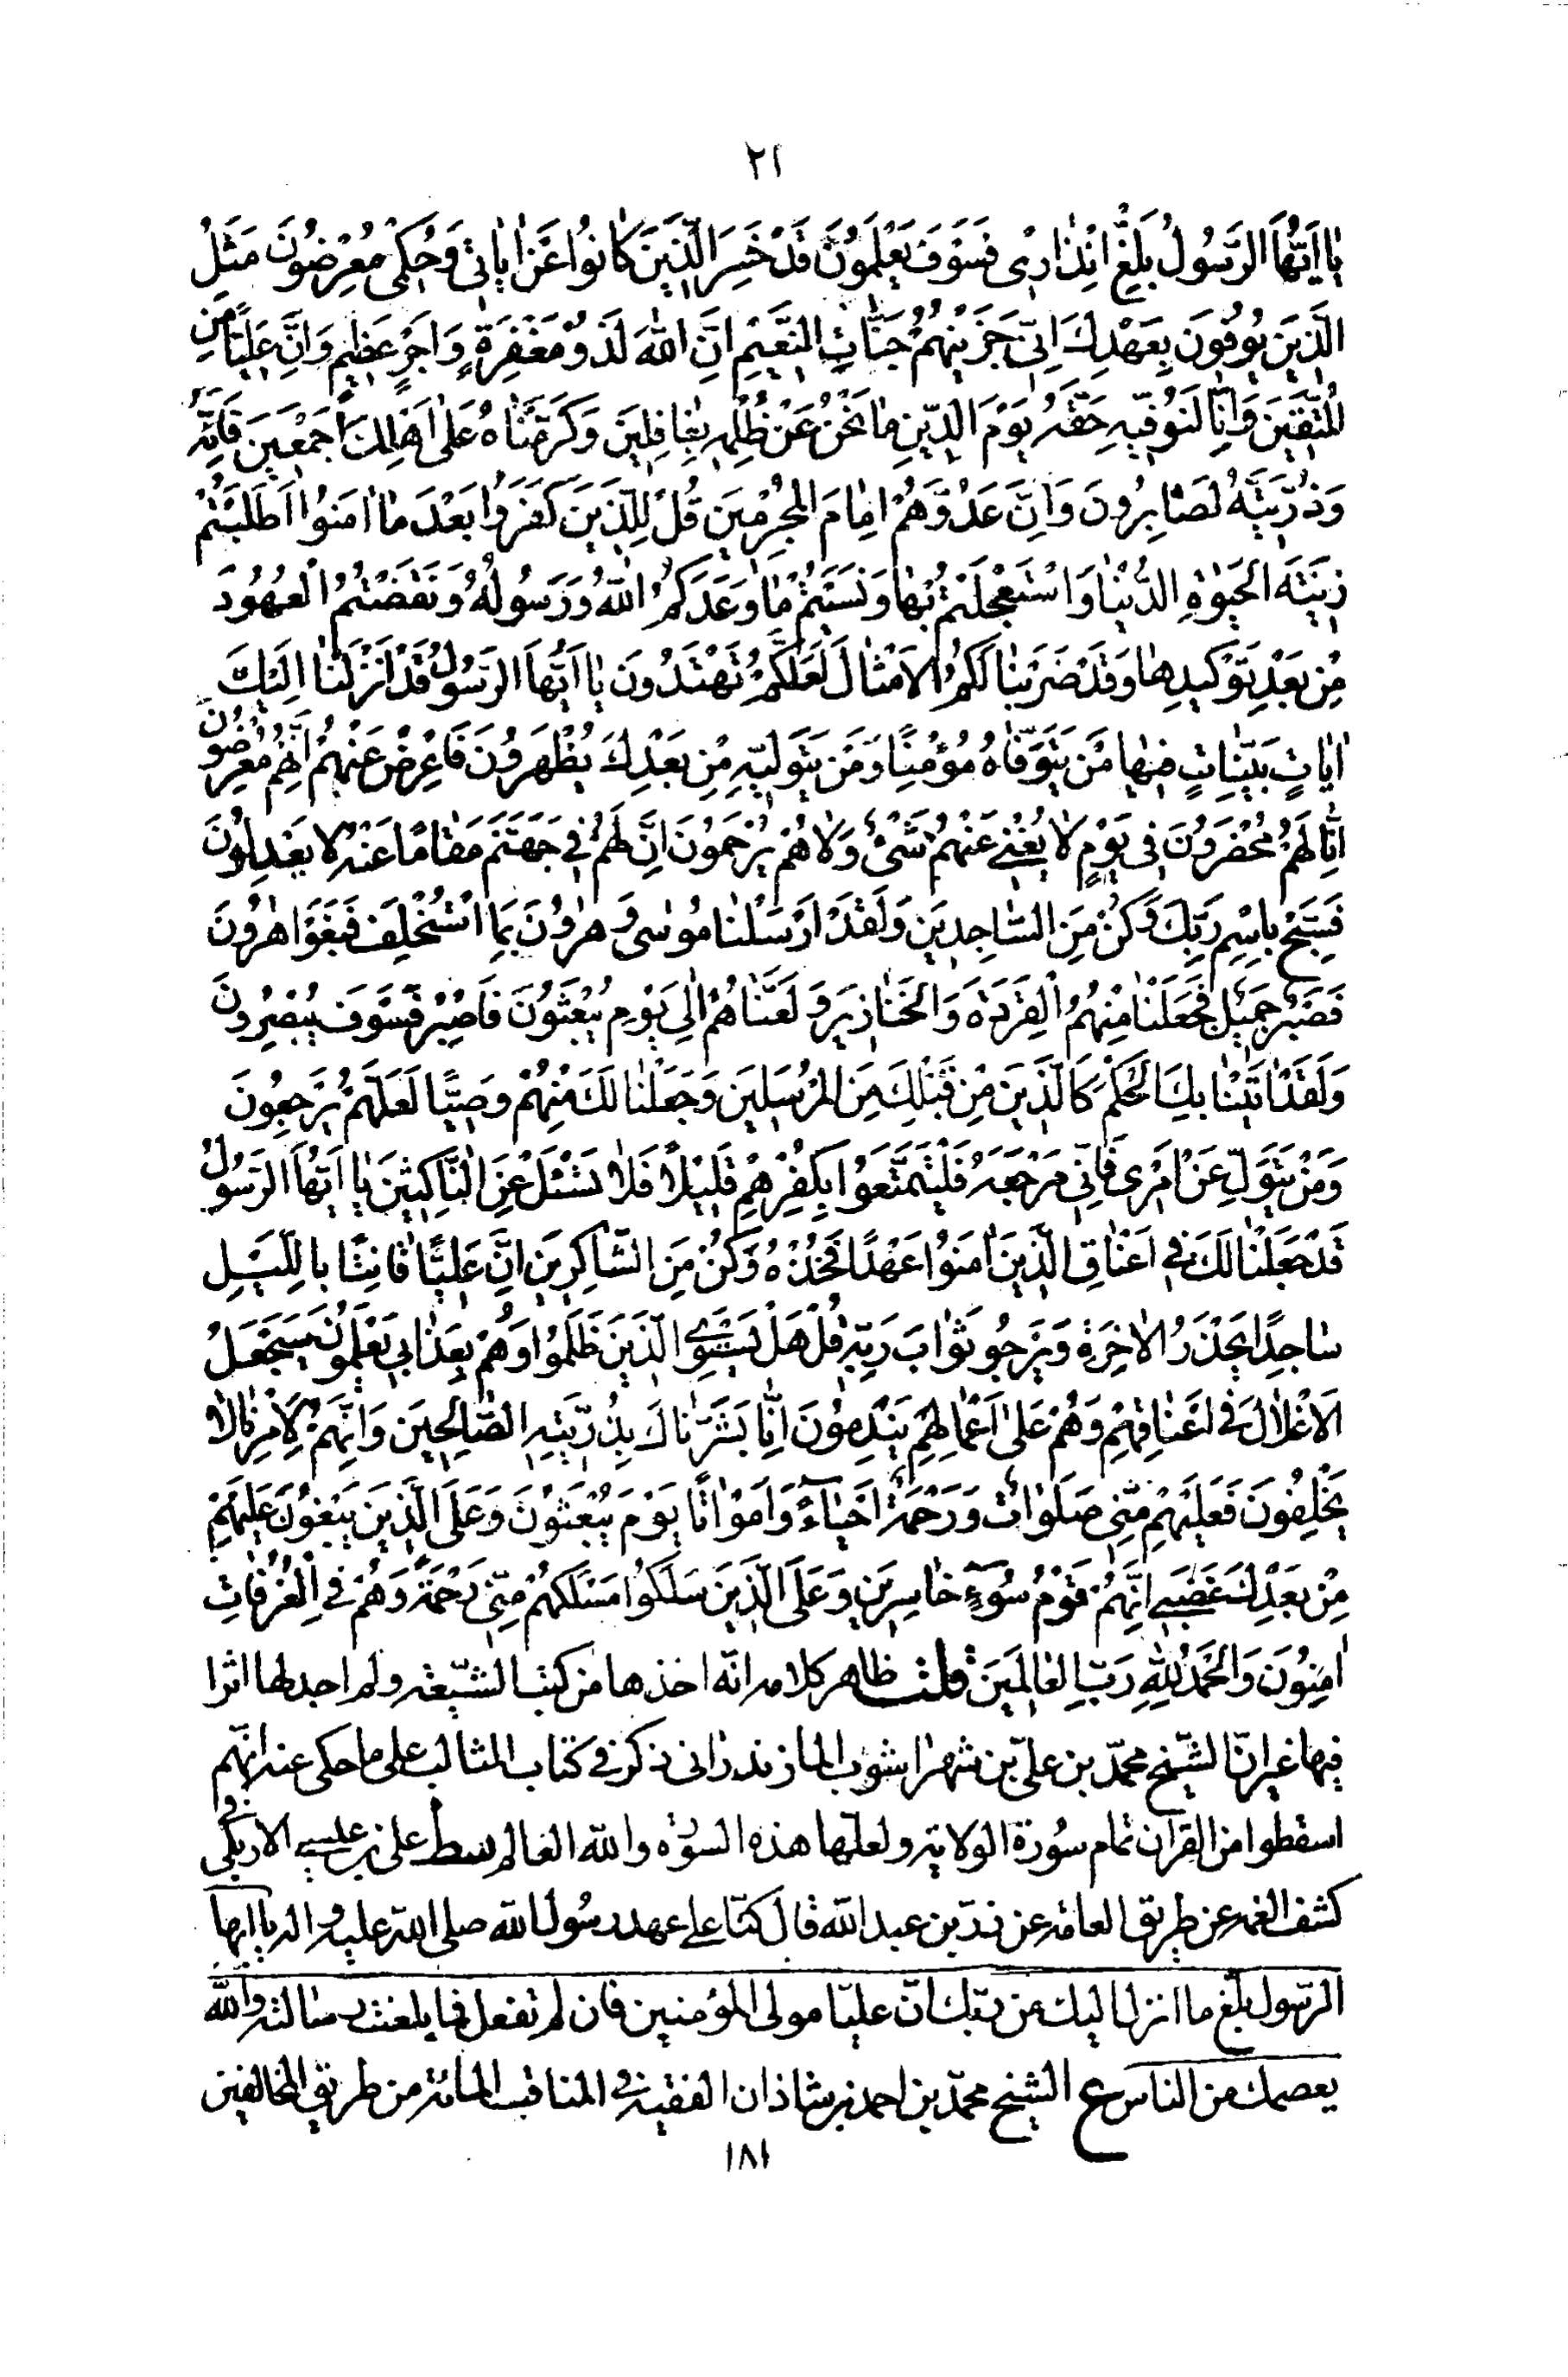 ٢١
يٰا اَيُّهَا الرَّسُولُ بَلِّغْ اِنْذٰارِى فَسَوْفَ يَعْلَمُونَ قَدْ خَسِرَ الَّذِينَ كٰانُوا عَنْ اٰيٰاتِى وَحُكْمِى مُعْرِضُونَ مَثَلُ
الَّذِينَ يُوفُونَ بِعَهْدِكَ اِنِّى جَزَيْتُهُمْ جَنّٰاتِ النَّعِيمِ اِنَّ اللّٰهَ لَذُو مَغْفِرَةٍ وَاَجْرٍ عَظِيمٍ وَاِنَّ عَلِيًّا مِنَ
الْمُتَّقِينَ وَاِنّٰا لَنُوَفِّيهِ حَقَّهُ يَوْمَ الدِّينِ مٰا نَحْنُ عَنْ ظُلْمِهِ بِغٰافِلِينَ وَكَرَّمْنٰاهُ عَلىٰ اَهْلِكَ اَجْمَعِينَ فَاِنَّهُ
وَذُرِّيَّتَهُ لَصٰابِرُونَ وَاِنَّ عَدُوَّهُمْ اِمٰامُ الْمُجْرِمِينَ قُلْ لِلَّذِينَ كَفَرُوا بَعْدَ مٰا اٰمَنُوا اَطَلَبْتُمْ
زِينَةَ الْحَيٰوةِ الدُّنْيٰا وَاسْتَعْجَلْتُمْ بِهٰا وَنَسِيتُمْ مٰا وَعَدَكُمُ اللّٰهُ وَرَسُولُهُ وَنَقَضْتُمُ الْعُهُودَ
مِنْ بَعْدِ تَوْكِيدِهٰا وَقَدْ ضَرَبْنٰا لَكُمُ الْاَمْثٰالَ لَعَلَّكُمْ تَهْتَدُونَ يٰا اَيُّهَا الرَّسُولُ قَدْ اَنْزَلْنٰا اِلَيْكَ
اٰيٰاتٍ بَيِّنٰاتٍ فِيهٰا مَنْ يَتَوَفّٰاهُ مُؤْمِنًا وَمَنْ يَتَوَلَّيهِ مِنْ بَعْدِكَ يُظْهَرُونَ فَاَعْرِضْ عَنْهُمْ اِنَّهُمْ مُعْرِضُونَ
اِنّٰا لَهُمْ مُحْضَرُونَ فِى يَوْمٍ لٰا يُغْنِى عَنْهُمْ شَىْءٌ وَلٰا هُمْ يُرْحَمُونَ اِنَّ لَهُمْ فِى جَهَنَّمَ مَقٰامًا عَنْهُ لٰا يَعْدِلُونَ
فَسَبِّحْ بِاسْمِ رَبِّكَ وَكُنْ مِنَ السّٰاجِدِينَ وَلَقَدْ اَرْسَلْنٰا مُوسٰى وَهٰرُونَ بِمَا اسْتُخْلِفَ فَبَغَوْا هٰرُونَ
فَصَبْرٌ جَمِيلٌ فَجَعَلْنٰا مِنْهُمُ الْقِرَدَةَ وَالْخَنٰازِيرَ وَلَعَنّٰاهُمْ اِلىٰ يَوْمِ يُبْعَثُونَ فَاصْبِرْ فَسَوْفَ يُبْصِرُونَ
وَلَقَدْ اٰتَيْنٰا بِكَ الْحُكْمَ كَالَّذِينَ مِنْ قَبْلِكَ مِنَ الْمُرْسَلِينَ وَجَعَلْنٰا لَكَ مِنْهُمْ وَصِيًّا لَعَلَّهُمْ يَرْجِعُونَ
وَمَنْ يَتَوَلَّ عَنْ اَمْرِى فَاِنِّى مَرْجَعُهُ فَلْيَتَمَتَّعُوا بِكُفْرِهِمْ قَلِيلًا فَلٰا تَسْئَلْ عَنِ النّٰاكِثِينَ يٰا اَيُّهَا الرَّسُولُ
قَدْ جَعَلْنٰا لَكَ فِى اَعْنٰاقِ الَّذِينَ اٰمَنُوا عَهْدًا فَخُذْهُ وَكُنْ مِنَ الشّٰاكِرِينَ اِنَّ عَلِيًّا قٰانِتًا بِاللَّيْلِ
سٰاجِدًا يَحْذَرُ الْاٰخِرَةَ وَيَرْجُو ثَوٰابَ رَبِّهِ قُلْ هَلْ يَسْتَوِى الَّذِينَ ظَلَمُوا وَهُمْ بِعَذٰابِى يَعْلَمُونَ سَيُجْعَلُ
الْاَغْلٰالُ فِى اَعْنٰاقِهِمْ وَهُمْ عَلىٰ اَعْمٰالِهِمْ يَنْدَمُونَ اِنّٰا بَشَّرْنٰاكَ بِذُرِّيَّتِهِ الصّٰالِحِينَ وَاِنَّهُمْ لِاَمْرِنٰا لٰا
يَخْلِفُونَ فَعَلَيْهِمْ مِنِّى صَلَوٰاتٌ وَرَحْمَةٌ اَحْيٰاءً وَاَمْوٰاتًا يَوْمَ يُبْعَثُونَ وَعَلَى الَّذِينَ يَبْغُونَ عَلَيْهِمْ
مِنْ بَعْدِكَ غَضَبِى اِنَّهُمْ قَوْمُ سُوءٍ خٰاسِرِينَ وَعَلَى الَّذِينَ سَلَكُوا مَسْلَكَهُمْ مِنِّى رَحْمَةٌ وَهُمْ فِى الْغُرُفٰاتِ
اٰمِنُونَ وَالْحَمْدُ لِلّٰهِ رَبِّ الْعٰالَمِينَ قلت ظاهر كلامه انّه اخذها من كتب الشّيعة ولم اجد لها اثرا
فيها غير انّ الشّيخ محمّد بن علىّ بن شهراشوب المازندرانى ذكر فى كتاب المثالب على ما حكى عنه انّهم
اسقطوا من القرآن تمام سُورة الولاية ولعلّها هذه السورة والله العالم سط على بن عيسى الاربلى فى
كشف الغمه عن طريق العامة عن زرّ بن عبد الله قال كنّا على عهد رسُول الله صلى الله عليه واله يا ايها
الرّسول بلّغ ما انزل اليك من ربّك انّ عليّا مولى المؤمنين فان لم تفعل فما بلغت رسالته والله
يعصمك من الناس ع الشيخ محمّد بن احمد بن شاذان الفقيه فى المناقب المائة من طريق المخالفين
١٨١